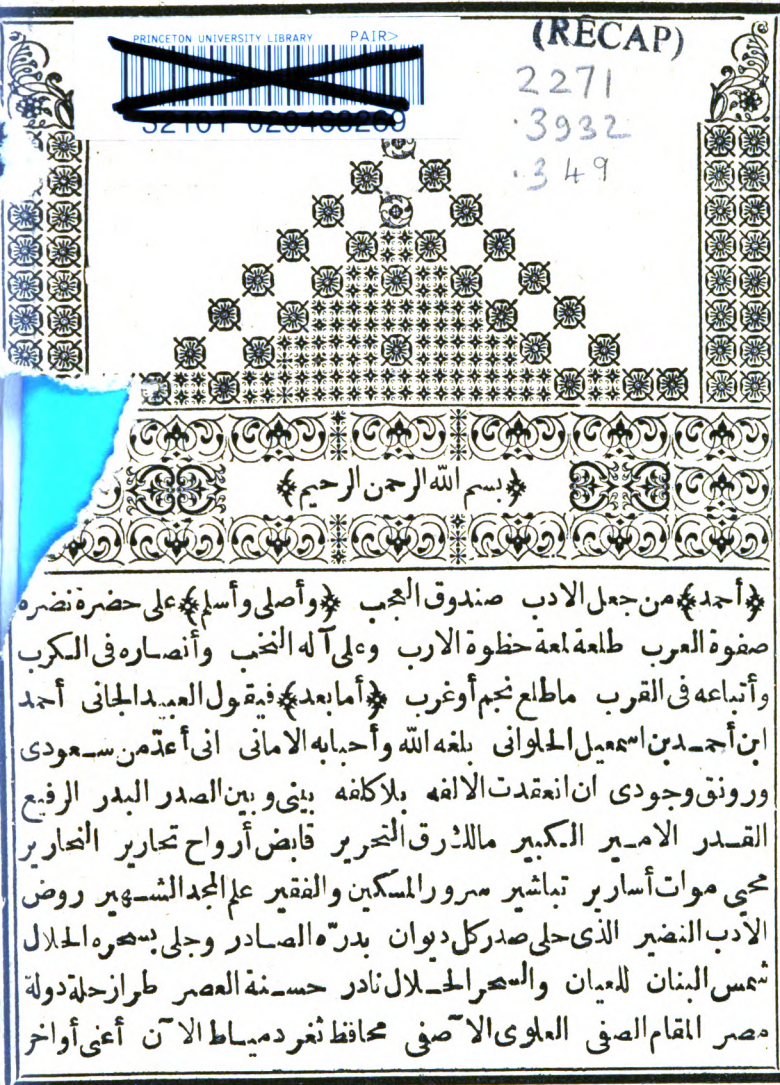 PRINCETON UNIVERSITY LIBRARY PAIR>
(RECAP)
2271
.3932
.349
﴿بسم الله الرحمن الرحيم﴾
﴿أحمد﴾ من جعل الادب صندوق العجب ﴿وأصلى وأسلم﴾ على حضرة نضرة
صفوة العرب طلعة لمعة حظوة الارب وعلى آله النخب وأنصاره فى الكرب
وأتباعه فى القرب ماطلع نجم أوغرب ﴿أمابعد﴾ فيقول العبيد الجانى أحمد
ابن أحمد بن اسمعيل الحلوانى بلغه الله وأحبابه الامانى انى أعدّ من سعودى
ورونق وجودى ان انعقدت الالفه بلاكلفه بينى وبين الصدر البدر الرفيع
القدر الامير الكبير مالك رق التحرير قابض أرواح تحارير النحارير
محى موات أسارير تباشير سرور المسكين والفقير علم المجد الشهير روض
الادب النضير الذى حلى صدر كل ديوان بدرّه الصادر وجلى بسحره الحلال
شمس البنان للعيان والسحر الحلال نادر حسنة العصر طراز حلة دولة
مصر المقام الصفى العلوى الآصفى محافظ ثغر دمياط الآن أعنى أواخر